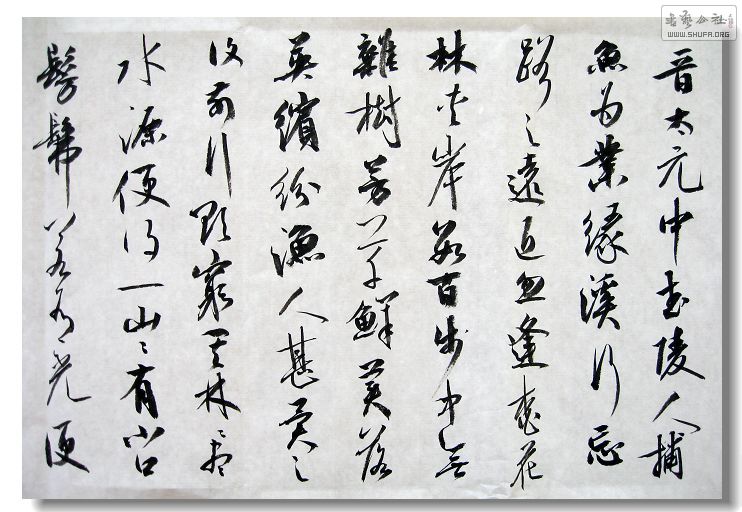 晋太元中武陵人捕
魚为業緣溪行忘
路之遠近忽逢桃花
林夾岸數百步中無
雜樹芳草鮮美落
英繽紛漁人甚異之
復前行欲窮其林〻盡
水源便得一山〻有小口
髣髴若有光便
书艺公社
WWW.SHUFA.ORG